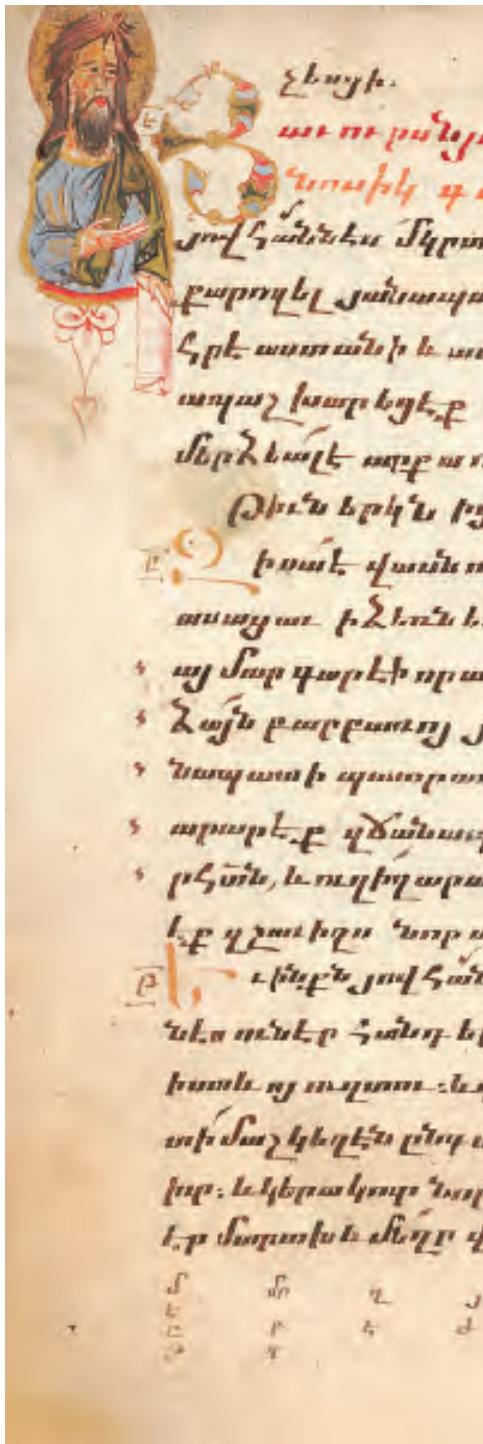 չեսցի.
Յաւուրսնյ
նոսիկ գ
յովհաննէս մկրտ
քարոզել յանապա
հրէաստանի և աս
ապաշխարեցէք
մերձեալէ արքա
թիւն երկն
իսաէ վասն ո
ասացաւ ի ձեռն ե
այ մարգարէի որ ա
Ձայն բարբառոյ յ
նապատի պատրաս
արարէք զճանապ
րհ տն, և ուղիղ արա
էք զշաւիղս նոր
Եւ ինքն յովհան
նէս ունէր հանդ եր
իստև ոյ ուղտու. և
տի մաշկեղէն ընդ մ
իւր. և կերակուր նոր
էր մարախ և մեղր վ